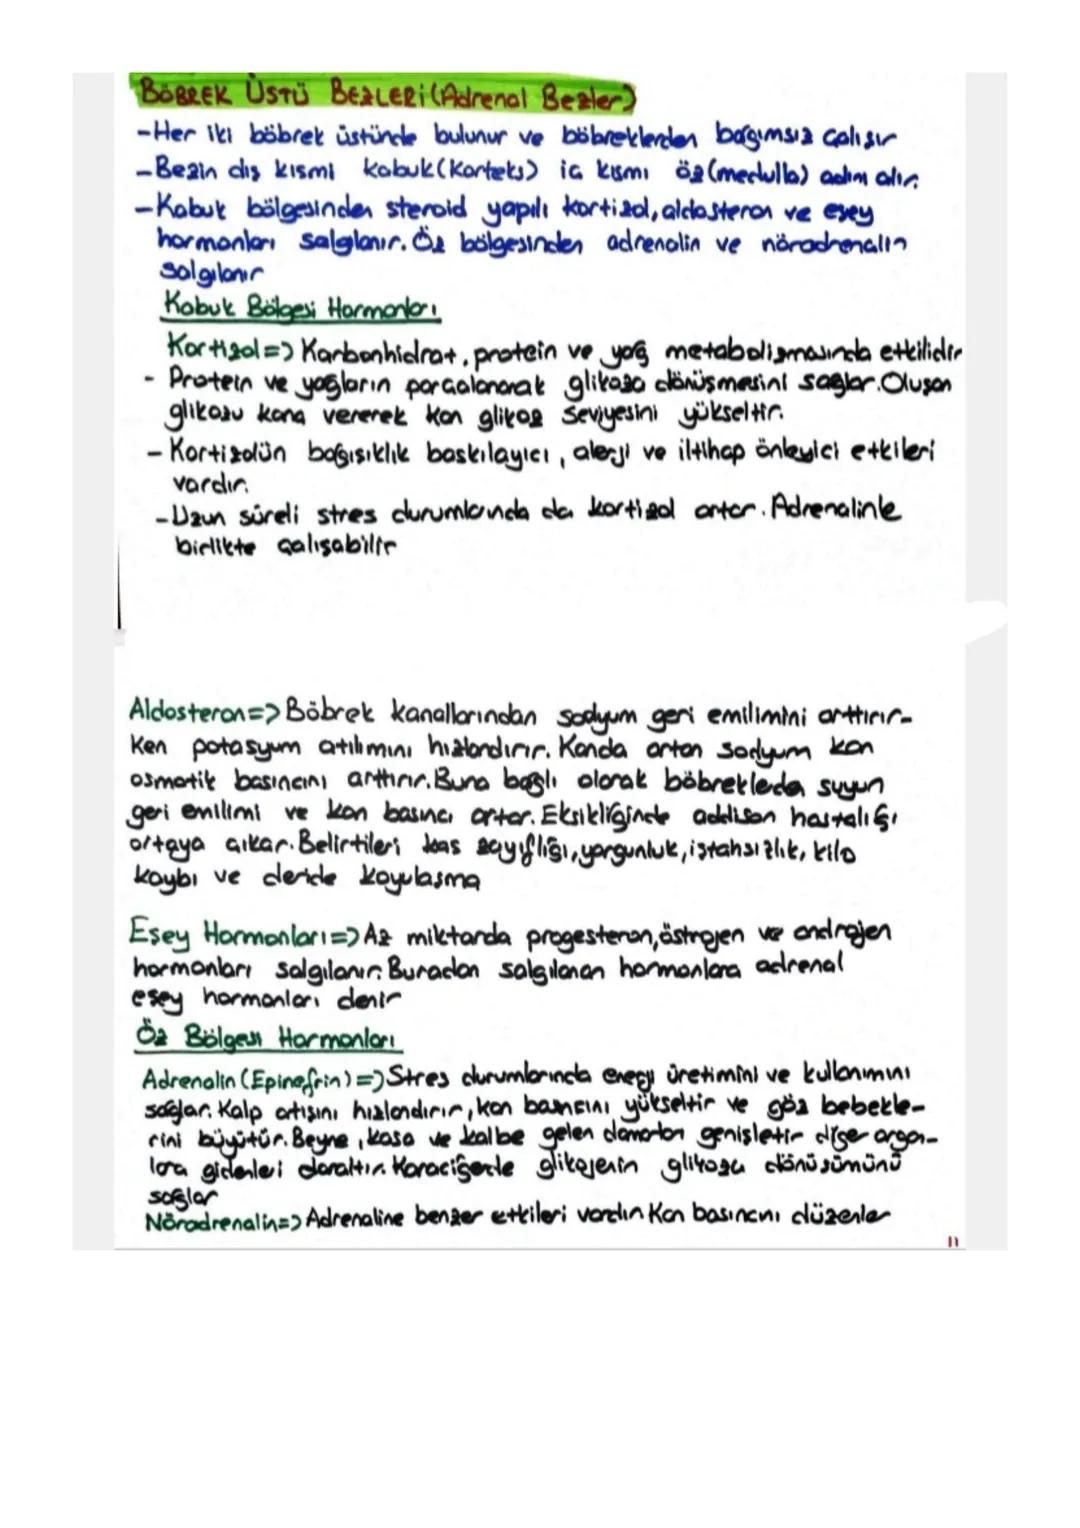 BÖBREK ÜSTÜ BEZLERİ (Adrenal Bezler)
-Her iki böbrek üstünde bulunur ve böbreklerden bağımsız çalışır
-Bezin dış kısmı kabuk (Korteks) iç kısmı öz (medulla) adını alır.
-Kabuk bölgesinden steroid yapılı kortizol, aldosteron ve eşey
hormonları salgılanır. Öz bölgesinden adrenalin ve nöradrenalin
salgılanır
Kabuk Bölgesi Hormonları
Kortizol=> Karbonhidrat, protein ve yağ metabolizmasında etkilidir
- Protein ve yağların parçalanarak glikoza dönüşmesini sağlar. Oluşan
glikozu kana vererek kan glikoz seviyesini yükseltir.
- Kortizolün bağışıklık baskılayıcı, alerji ve iltihap önleyici etkileri
vardır.
-Uzun süreli stres durumlarında da kortizol artar. Adrenalinle
birlikte çalışabilir
Aldosteron=> Böbrek kanallarından sodyum geri emilimini arttırır-
ken potasyum atılımını hızlandırır. Kanda artan sodyum kan
osmotik basıncını arttırır. Buna bağlı olarak böbreklerde suyun
geri emilimi ve kan basıncı artar. Eksikliğinde addison hastalığı
ortaya çıkar. Belirtileri kas zayıflığı, yorgunluk, iştahsızlık, kilo
kaybı ve deride koyulaşma
Eşey Hormonları=> Az miktarda progesteron, östrojen ve androjen
hormonları salgılanır. Buradan salgılanan hormonlara adrenal
eşey hormonları denir
Öz Bölgesi Hormonları
Adrenalin (Epinefrin)=> Stres durumlarında enerji üretimini ve kullanımını
sağlar. Kalp artışını hızlandırır, kan basıncını yükseltir ve göz bebekle-
rini büyütür. Beyne, kasa ve kalbe gelen damarları genişletir diğer organ-
lara gidenleri daraltır. Karaciğerde glikojenin glikoza dönüşümünü
sağlar
Nöradrenalin=> Adrenaline benzer etkileri vardır. Kan basıncını düzenler
11